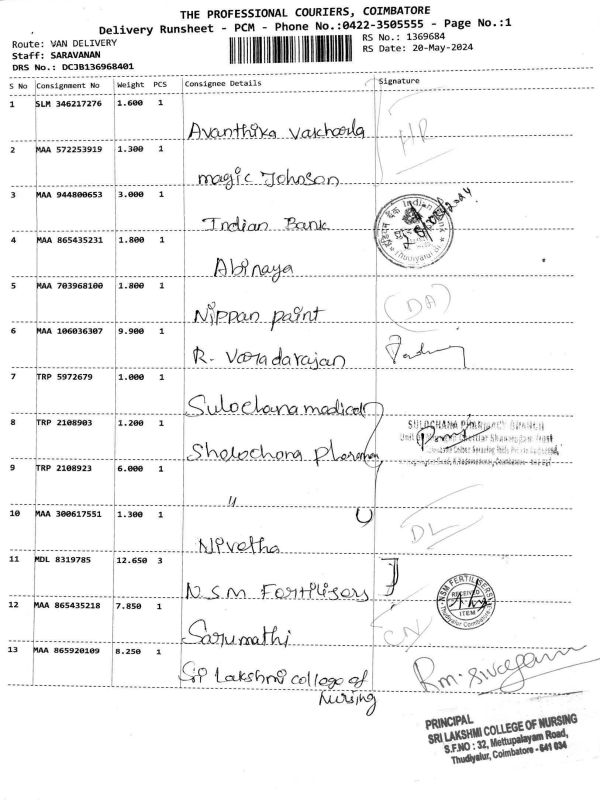 THE PROFESSIONAL COURIERS, COIMBATORE
Delivery Runsheet - PCM - Phone No.:0422-3505555 - Page No.:1
Route: VAN DELIVERY
RS No.: 1369684
Staff: SARAVANAN
RS Date: 20-May-2024
DRS No.: DC3B136968401
S No Consignment No Weight PCS Consignee Details Signature
1 SLM 346217276 1.600 1
Avanthika HR
2 MAA 572253919 1.300 1
magic Johnson
3 MAA 944800653 3.000 1
Indian Bank
4 MAA 865435231 1.800 1
Abinaya
5 MAA 703968100 1.800 1
Nippan paint (DA)
6 MAA 106036307 9.900 1
R. Varadarajan
7 TRP 5972679 1.000 1
Sulochana medical
8 TRP 2108903 1.200 1
SULOCHANA PHARMACY
9 TRP 2108923 6.000 1
"
10 MAA 300617551 1.300 1
Nivetha DL
11 MDL 8319785 12.650 3
N.S.M. Fertilisers
NSM FERTILISERS
RECEIVED
ITEM
Thudiyalur Coimbatore
12 MAA 865435218 7.850 1
Sarumathi CN
13 MAA 865920109 8.250 1
Sri Lakshmi college of
Nursing
PRINCIPAL
SRI LAKSHMI COLLEGE OF NURSING
S.F.NO : 32, Mettupalayam Road,
Thudiyalur, Coimbatore - 641 034